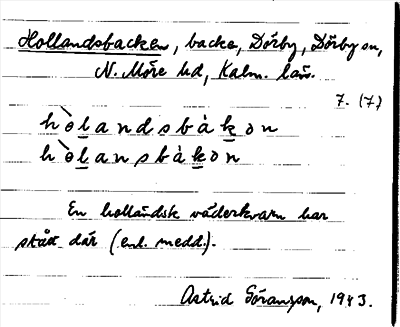 Hollandsbacken, backe, Dörby, Dörby sn,
N. Möre hd, Kalm. län.
7. (7)
hòlandsbàkon
hòlansbàkon
En holländsk väderkvarn har
stått där (enl. medd.).
Astrid Göransson, 1943.